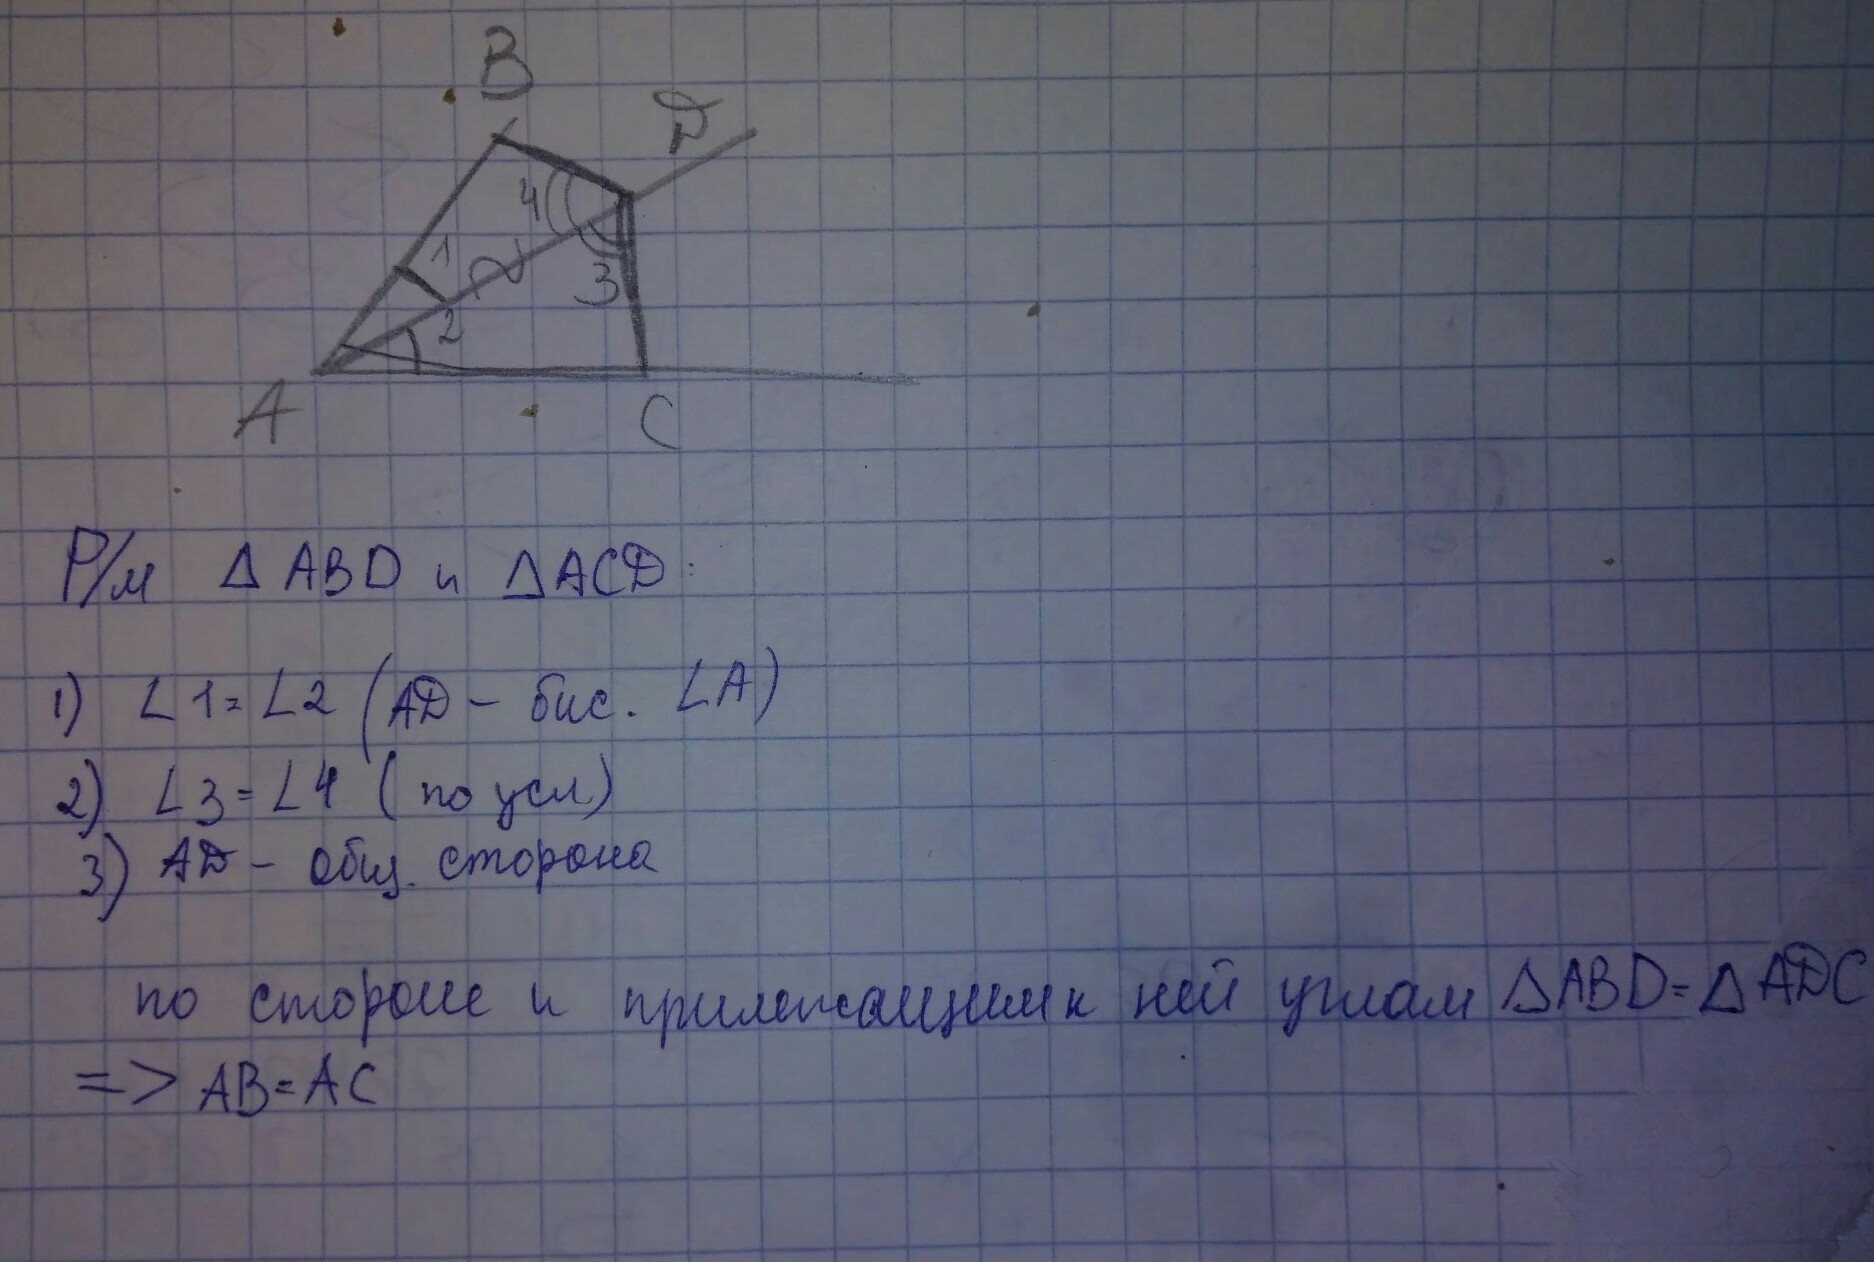 B
D
4
1
3
2
A
C
Р/м Δ ABD и ΔACD:
1) ∠1=∠2 (AD - бис. ∠A)
2) ∠3=∠4 (по усл)
3) AD - общ. сторона
по стороне и прилежащим к ней углам ΔABD=ΔADC
=> AB=AC